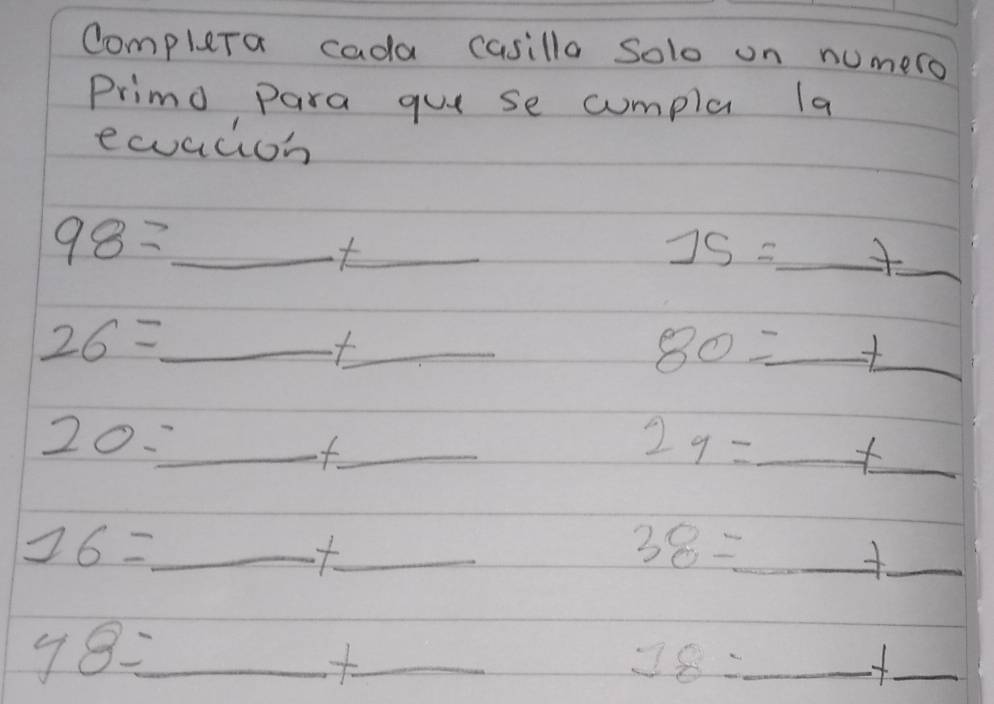 Completa cada casilla Solo un numero
Primo para que se cumpla la
ecuación
98 = ____ + ____ 15 = ____ + ____
26 = ____ + ____ 80 = ____ + ____
20 = ____ + ____ 29 = ____ + ____
16 = ____ + ____ 38 = ____ + ____
48 = ____ + ____ 18 = ____ + ____